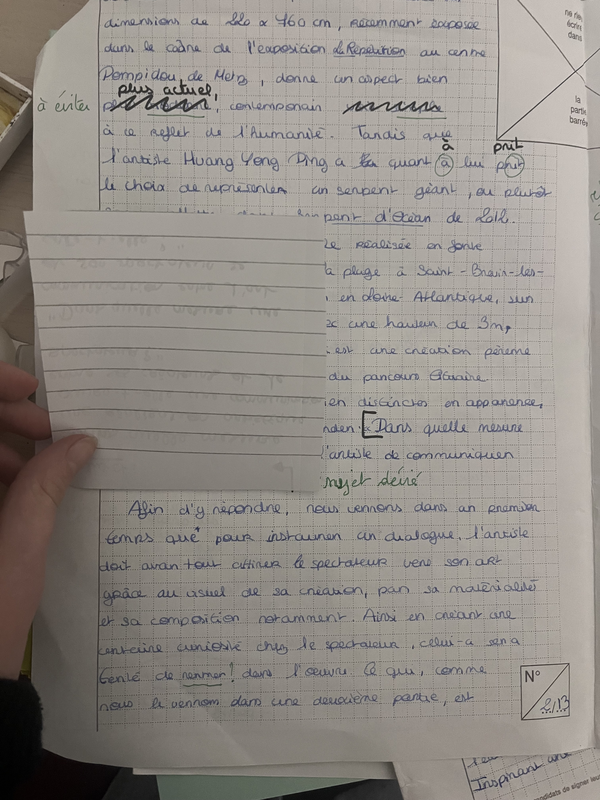 dimensions de 220 x 760 cm, récemment exposée
dans le cadre de l'exposition La Répétition au centre
Pompidou de Metz, donne un aspect bien
plus actuel,
à éviter
contemporain
à ce reflet de l'humanité. Tandis que
à prit
l'artiste Huang Yong Ping a quant à lui prit
le choix de représenter un serpent géant, ou plutôt
serpent d'Océan de 2012.
réalisée en fonte
la plage à Saint-Brevin-les-
en Loire-Atlantique, sur
une hauteur de 3m,
est une création pérenne
du parcours Estuaire.
en distinctes en apparence,
[Dans quelle mesure
l'artiste de communiquer
sujet dévié
Afin d'y répondre, nous verrons dans un premier
temps que pour instaurer un dialogue, l'artiste
doit avant tout attirer le spectateur vers son art
grâce au visuel de sa création, par sa matérialité
et sa composition notamment. Ainsi en créant une
certaine curiosité chez le spectateur, celui-ci sera
tenté de rentrer! dans l'oeuvre. Ce qui, comme
nous le verrons dans une deuxième partie, est
N°
2/13
ne rien
écrire
dans
la
partie
barrée
Inspirant
candidats de signer leur